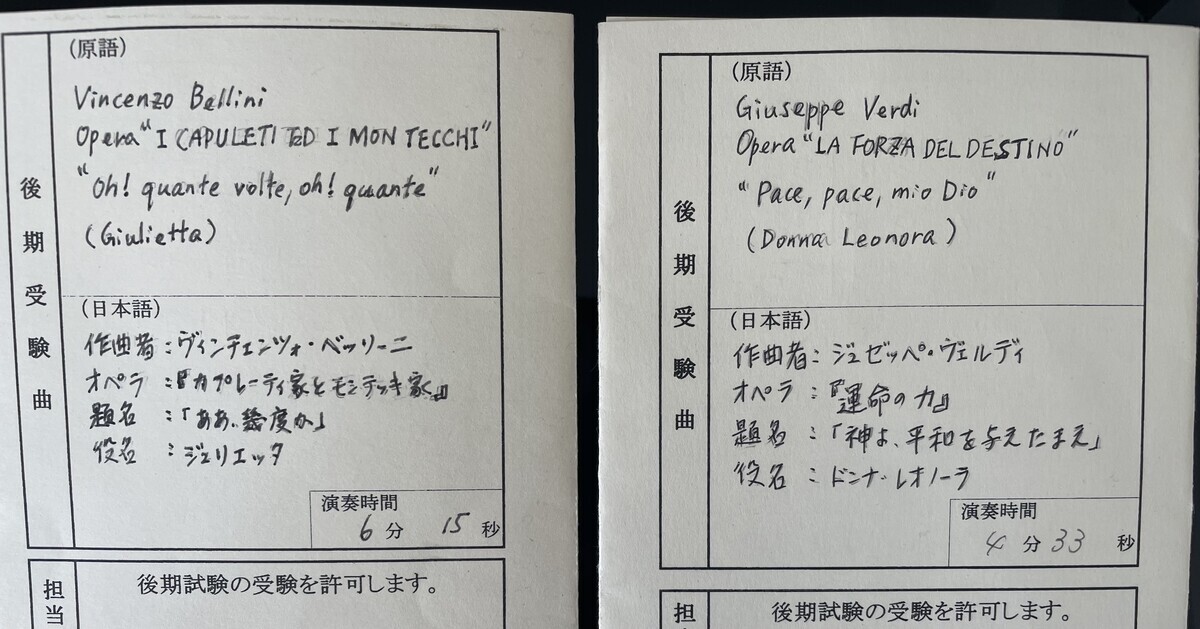 後期受験曲
(原語)
Vincenzo Bellini
Opera "I CAPULETI ED I MONTECCHI"
"Oh! quante volte, oh! quante"
(Giulietta)
(日本語)
作曲者:ヴィンチェンツォ・ベッリーニ
オペラ:『カプレーティ家とモンテッキ家』
題名:「ああ、幾度か」
役名:ジュリエッタ
演奏時間
6分 15秒
担当
後期試験の受験を許可します。
後期受験曲
(原語)
Giuseppe Verdi
Opera "LA FORZA DEL DESTINO"
"Pace, pace, mio Dio"
(Donna Leonora)
(日本語)
作曲者:ジュゼッペ・ヴェルディ
オペラ:『運命の力』
題名:「神よ、平和を与えたまえ」
役名:ドンナ・レオノーラ
演奏時間
4分33秒
担
後期試験の受験を許可します。